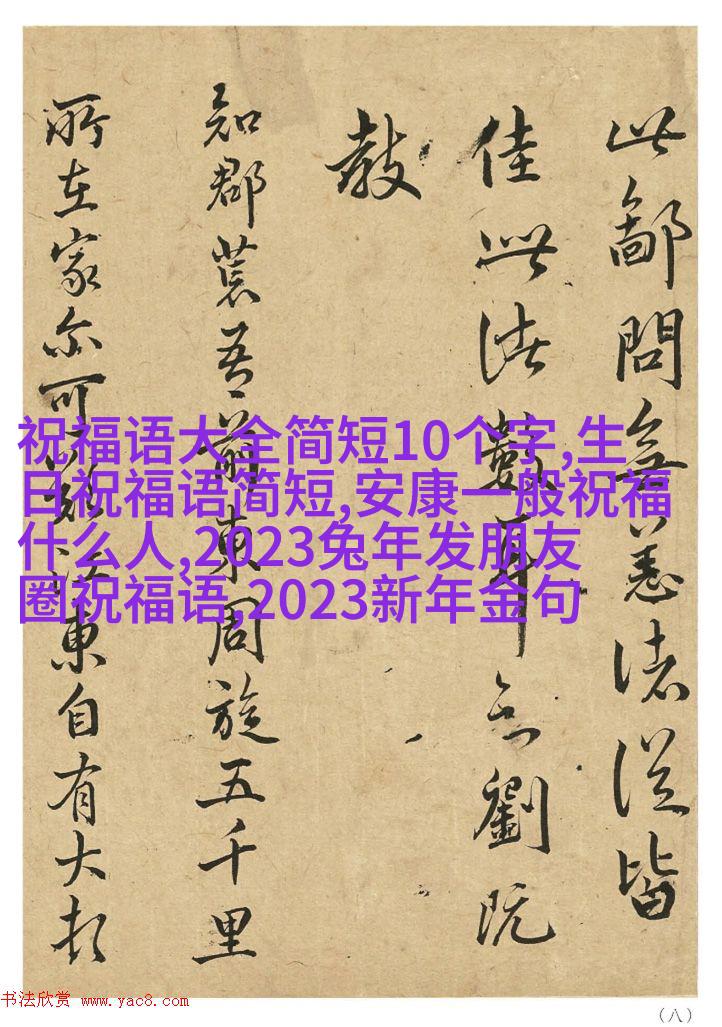 此鄙問無恙諸從皆
佳此諸數耳
劉既
教
知郡荒吾前東周旋五千里
所在家亦可
東自有大
祝福语大全简短10个字,生
日祝福语简短,安康一般祝福
什么人,2023兔年发朋友
圈祝福语,2023新年金句
书法欣赏 www.yac8.com
（八）